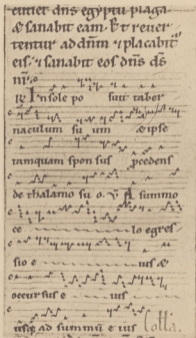 cutiet dns egyptu plaga
& sanabit eam. Et rever
tentur ad dnm & placabit
eis. & sanabit eos dns ds
nr.
R. In sole po suit taber
naculum su um & ipse
tamquam spon sus pcedens
de thalamo su o. V. A summo
ce lo egres
sio e ius &
occursus e ius
usq; ad summu e ius